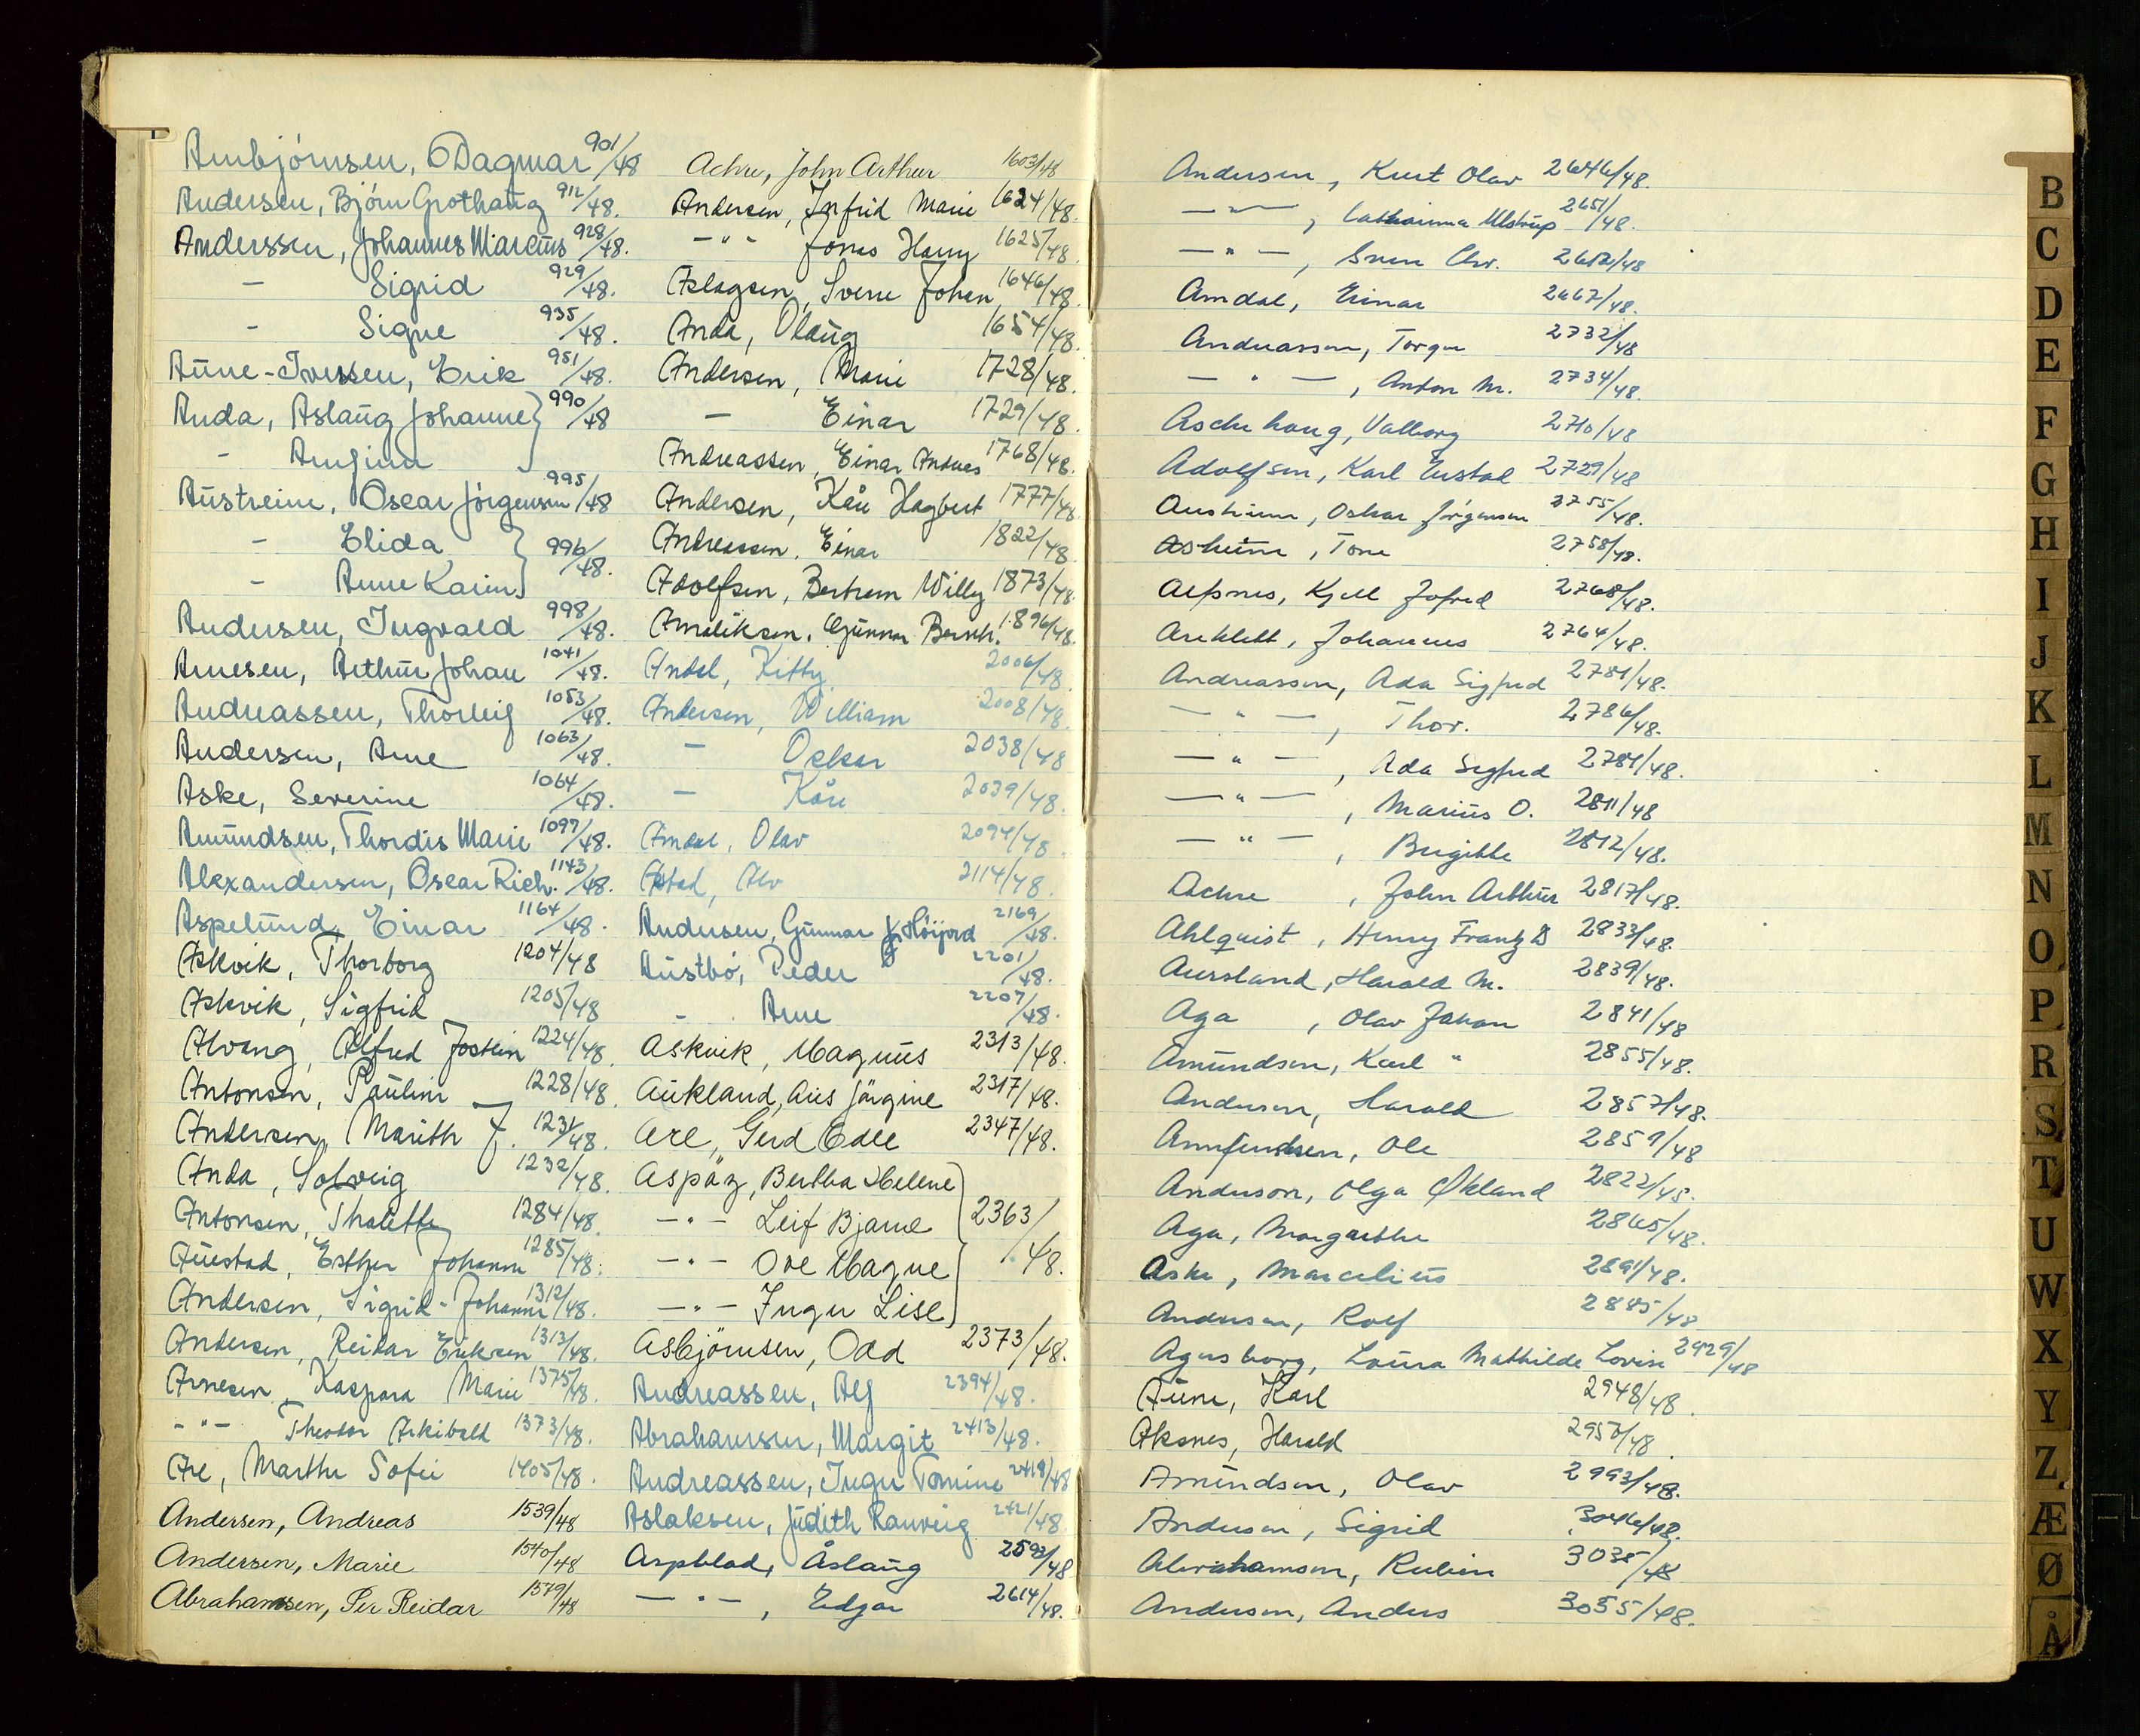 Arnbjörnsen, Dagmar 901/48
Andersen, Björn Grothaug 912/48.
Anderssen, Johannes Marcus 928/48.
- Sigrid 929/48.
- Signe 935/48.
Aune-Iversen, Erik 951/48.
Anda, Aslaug Johanne } 990/48
- Arnfinn
Austreim, Oscar Jörgensen 995/48
- Elida } 996/48.
- Anne Karin
Andersen, Ingvald 998/48.
Arnesen, Arthur Johan 1041/48.
Andreassen, Thorleif 1053/48.
Andersen, Arne 1063/48.
Aske, Severine 1064/48.
Amundsen, Thordis Marie 1097/48.
Alexandersen, Oscar Rich. 1143/48.
Aspelund, Einar 1164/48.
Askvik, Thorborg 1204/48
Askvik, Sigfrid 1205/48
Alvang, Alfred Jostein 1224/48.
Antonsen, Pauline 1228/48.
Andersen, Marith J. 1231/48.
Anda, Solveig 1232/48.
Antonsen, Thalette 1284/48.
Auestad, Esther Johanne 1285/48.
Andersen, Sigrid - Johanne 1312/48.
Andersen, Reidar Eriksen 1313/48.
Arnesen, Kaspara Marie 1375/48.
- " - Theodor Arkibald 1373/48.
Are, Marthe Sofie 1405/48.
Andersen, Andreas 1539/48
Andersen, Marie 1540/48
Abrahamsen, Per Reidar 1579/48
Achre, John Arthur 1603/48
Andersen, Infrid Marie 1624/48.
- " - Jonas Harry 1625/48
Aslagsen, Sverre Johan 1646/48.
Anda, Olaug 1654/48.
Andersen, Marie 1728/48.
- Einar 1729/48.
Andreassen, Einar Andreas 1768/48.
Andersen, Kåre Hagbert 1777/48
Andreassen, Einar 1822/48
Adolfsen, Bertram Willy 1873/48
Amaliksen, Gunnar Bernh. 1896/48.
Andal, Kitty 2006/48
Andersen, William 2008/48.
- Oskar 2038/48
- Kåre 2039/48.
Amdal, Olav 2094/48
Astad, Alv 2114/48.
Andersen, Gunnar Höijord 2169/48.
Austbö, Peder 2201/48.
- Arne 2207/48.
Askvik, Magnus 2313/48.
Aukland, Ais Jörgine 2317/48.
Are, Gerd Edle 2347/48.
Aspöy, Bertha Helene } 2363/48.
- " - Leif Bjarne
- " - Ove Magne
- " - Inger Lise
Asbjörnsen, Odd 2373/48.
Andreassen, Alf 2394/48.
Abrahamsen, Margit 2413/48.
Andreassen, Inger Tomine 2419/48
Aslaksen, Judith Ranveig 2421/48.
Aspblad, Åslaug 2593/48
- " -, Edgar 2614/48.
Andersen, Kurt Olav 2646/48.
- " -, Catharina Ulstrup 2651/48.
- " -, Sven Chr. 2652/48
Amdal, Einar 2667/48.
Andreassen, Torger 2732/48
- " -, Anton M. 2734/48.
Aschehoug, Valborg 2710/48
Adolfsen, Karl Gustal 2729/48
Austreim, Oskar Jörgensen 2755/48.
Asheim, Tone 2758/48.
Alfsnes, Kjell Jofred 2768/48.
Areklett, Johannes 2764/48.
Andreassen, Ada Sigfred 2781/48.
- " -, Thor. 2786/48.
- " -, Ada Sigfred 2781/48.
- " -, Marius O. 2811/48
- " -, Birgitte 2812/48.
Achre, John Arthur 2817/48.
Ahlquist, Henry Frantz D 2833/48.
Auersland, Harald M. 2839/48.
Aga, Olav Johan 2841/48
Amundsen, Karl " 2855/48.
Andersen, Harald 2857/48.
Arnfindsen, Ole 2859/48
Anderson, Olga Økland 2822/48.
Aga, Margarethe 2865/48.
Aske, Marcelius 2891/48.
Andersen, Rolf 2885/48
Agersborg, Laura Mathilde Lovise 2929/48
Aune, Karl 2948/48.
Aksnes, Harald 2957/48.
Amundsen, Olav 2993/48.
Andersen, Sigrid 3046/48.
Abrahamsen, Rubin 3035/48
Andersen, Anders 3055/48.
B
C
D
E
F
G
H
I
J
K
L
M
N
O
P
R
S
T
U
W
X
Y
Z
Æ
Ø
Å